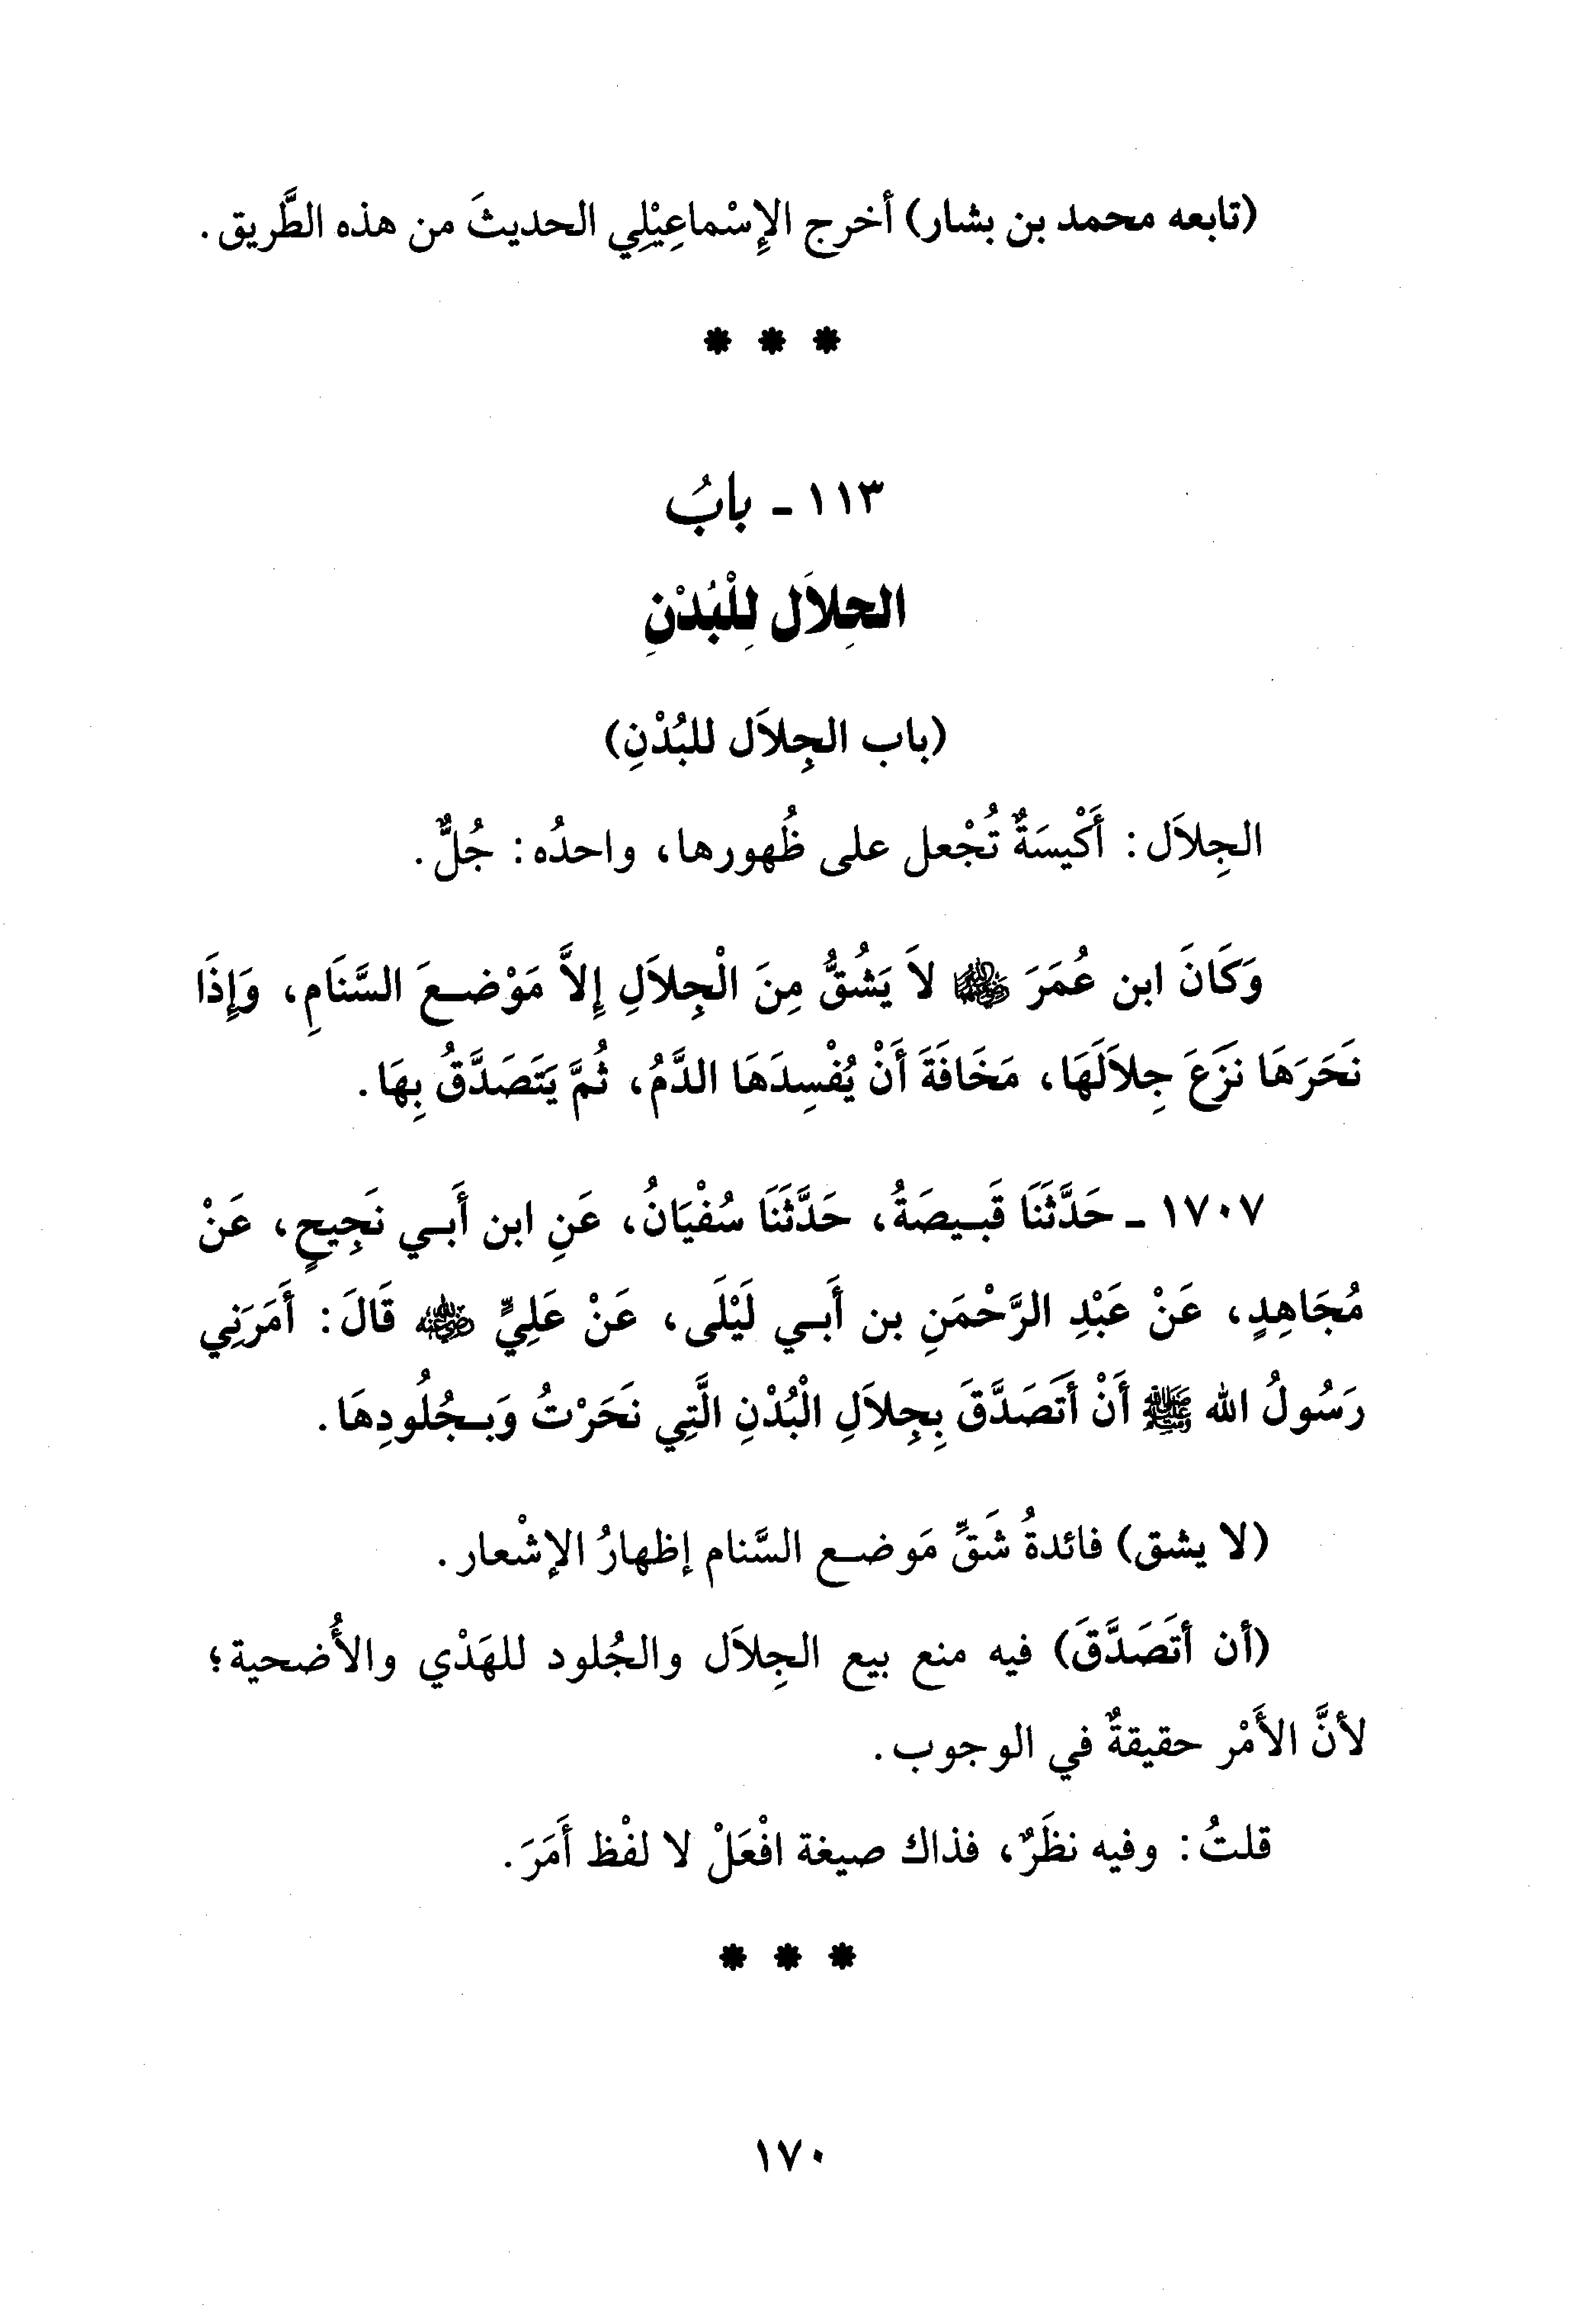 (تابعه محمد بن بشار) أخرج الإِسْماعِيْلِي الحديثَ من هذه الطَّريق.
* * *
١١٣ - بابُ
الجِلاَل لِلْبُدْنِ
(باب الجِلاَل للبُدْنِ)
الجِلاَل: أَكْيسَةٌ تُجْعل على ظُهورها، واحدُه: جُلٌّ.
وَكَانَ ابن عُمَرَ رضي الله عنهما لاَ يَشُقُّ مِنَ الْجِلاَلِ إِلاَّ مَوْضِعَ السَّنَامِ، وَإِذَا
نَحَرَهَا نَزَعَ جِلاَلَهَا، مَخَافَةَ أَنْ يُفْسِدَهَا الدَّمُ، ثُمَّ يَتَصَدَّقُ بِهَا.
١٧٠٧ - حَدَّثَنَا قَبِيصَةُ، حَدَّثَنَا سُفْيَانُ، عَنِ ابن أَبي نَجِيحٍ، عَنْ
مُجَاهِدٍ، عَنْ عَبْدِ الرَّحْمَنِ بن أَبي لَيْلَى، عَنْ عَلِيٍّ رضي الله عنه قَالَ: أَمَرَنِي
رَسُولُ الله ﷺ أَنْ أَتَصَدَّقَ بِجِلاَلِ الْبُدْنِ الَّتِي نَحَرْتُ وَبِجُلُودِهَا.
(لا يشق) فائدةُ شَقِّ مَوضع السَّنام إظهارُ الإشْعار.
(أن أتَصَدَّقَ) فيه منع بيع الجِلاَل والجُلود للهَدْي والأُضحية؛
لأنَّ الأَمْر حقيقةٌ في الوجوب.
قلتُ: وفيه نظَرٌ، فذاك صيغة افْعَلْ لا لفْظ أَمَرَ.
* * *
١٧٠